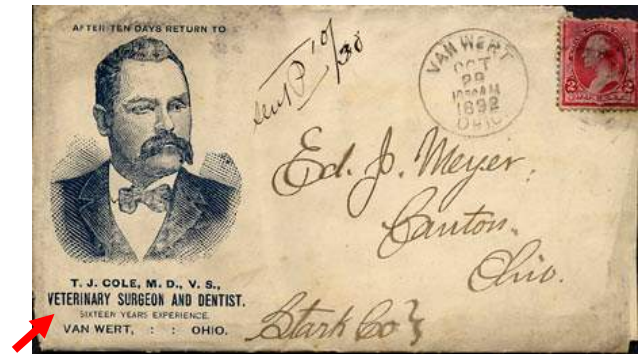 AFTER TEN DAYS RETURN TO
T. J. COLE, M. D., V. S.,
VETERINARY SURGEON AND DENTIST.
SIXTEEN YEARS EXPERIENCE.
VAN WERT, : : OHIO.
10/30
VAN WERT
OCT
29
1892
OHIO
2 2
Ed. J. Meyer,
Canton,
Ohio.
Stark Co